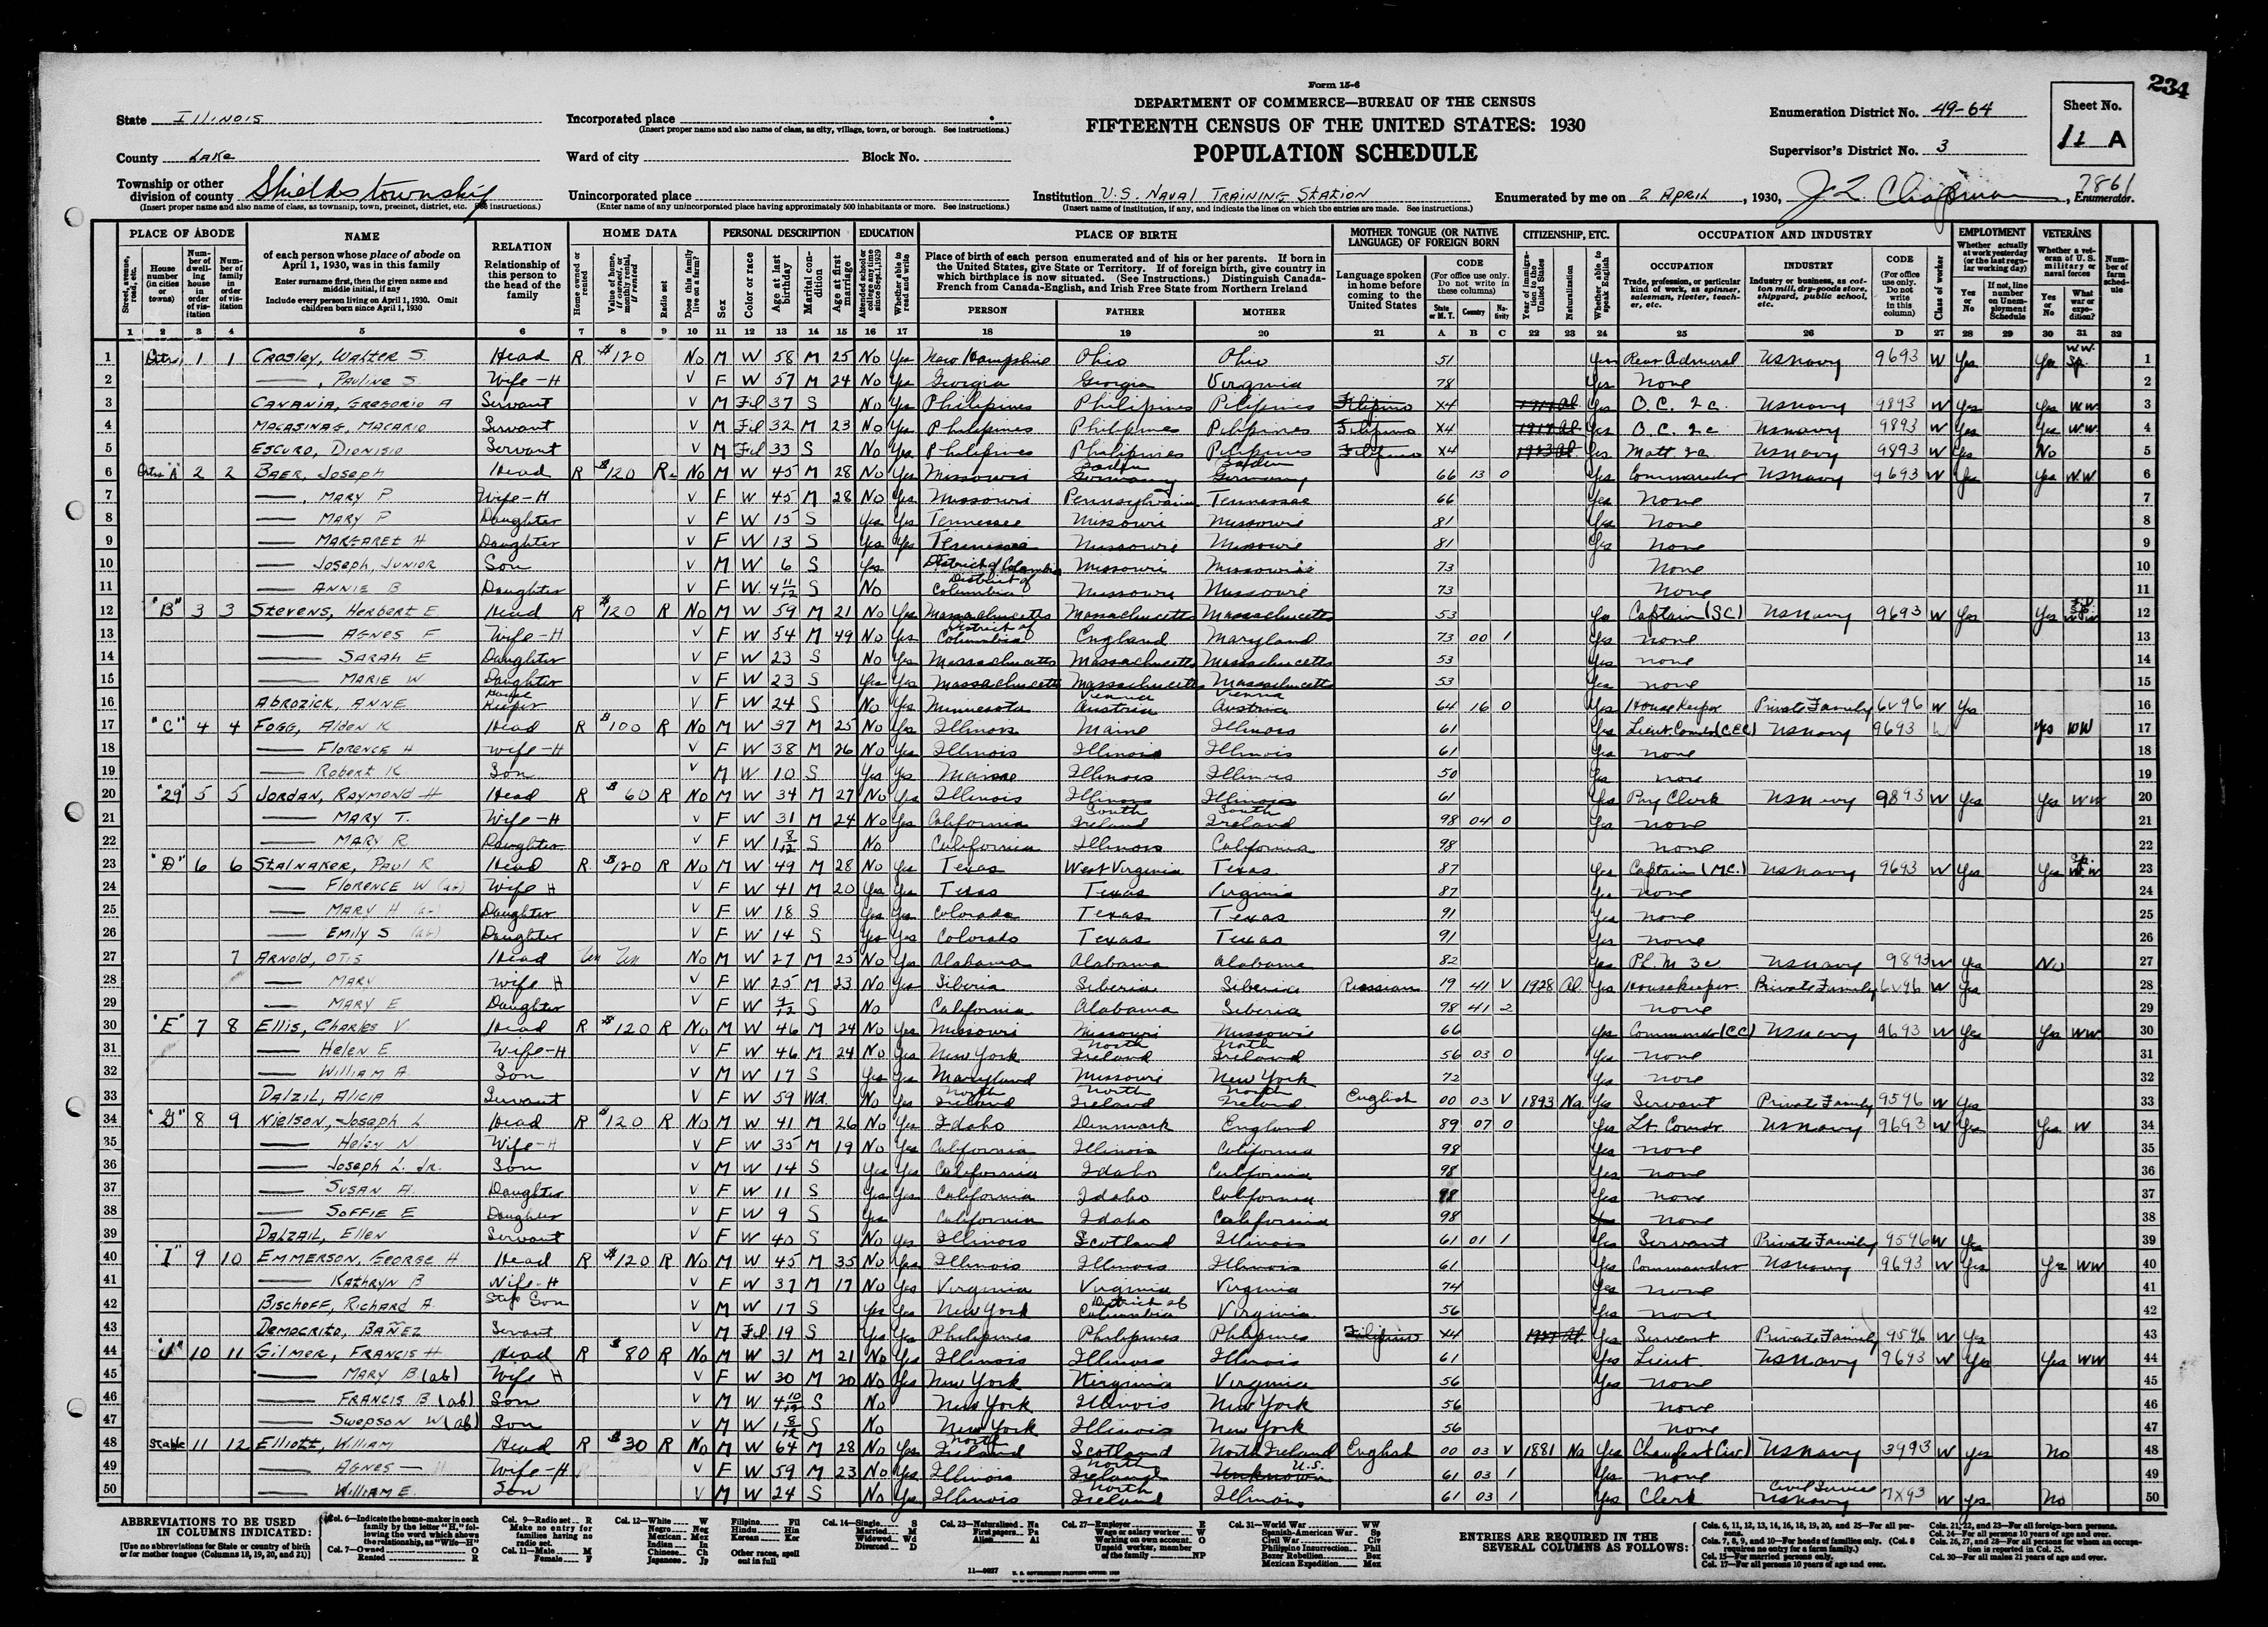 234
Form 15-6
DEPARTMENT OF COMMERCE—BUREAU OF THE CENSUS
FIFTEENTH CENSUS OF THE UNITED STATES: 1930
POPULATION SCHEDULE
State Illinois
County Lake
Township or other division of county Shields township
(Insert proper name and also name of class, as township, town, precinct, district, etc. See instructions.)
Incorporated place
(Insert proper name and also name of class, as city, village, town, or borough. See instructions.)
Ward of city Block No.
Unincorporated place
(Enter name of any unincorporated place having approximately 500 inhabitants or more. See instructions.)
Institution U.S. Naval Training Station
(Insert name of institution, if any, and indicate the lines on which the entries are made. See instructions.)
Enumeration District No. 49-64
Supervisor's District No. 3
Sheet No. 11 A
7861
Enumerated by me on 2 April, 1930, J L Chapman, Enumerator.
PLACE OF ABODE NAME RELATION HOME DATA PERSONAL DESCRIPTION EDUCATION PLACE OF BIRTH MOTHER TONGUE (OR NATIVE LANGUAGE) OF FOREIGN BORN CITIZENSHIP, ETC. OCCUPATION AND INDUSTRY EMPLOYMENT VETERANS
1 1 1 Crosley, Walter S. Head R $120 No M W 58 M 25 No Yes New Hampshire Ohio Ohio 51 Yes Rear Admiral US Navy 9693 W Yes Yes W.W. Sp. 1
2 —, Pauline S. Wife-H V F W 57 M 24 No Yes Georgia Georgia Virginia 78 Yes None 2
3 Canania, Gregorio A Servant V M Fil 37 S No Yes Philipines Philipines Pilipines Filipino X4 Yes O.C. 2c. US Navy 9893 W Yes Yes W.W. 3
4 Macasinag, Macario Servant V M Fil 32 M 23 No Yes Philipines Philipines Pilipines Filipino X4 Yes O.C. 2c US Navy 9893 W Yes Yes W.W. 4
5 Escuro, Dionisio Servant V M Fil 33 S No Yes Philipines Philipines Pilipines Filipino X4 Yes Matt 2c US Navy 9893 W Yes No 5
6 "A" 2 2 Baer, Joseph Head R $120 R No M W 45 M 28 No Yes Missouri Baden Germany Baden Germany 66 13 0 Yes Commander US Navy 9693 W Yes Yes W.W 6
7 —, Mary P Wife-H V F W 45 M 28 No Yes Missouri Pennsylvania Tennessee 66 Yes None 7
8 — Mary P Daughter V F W 15 S Yes Yes Tennessee Missouri Missouri 81 Yes None 8
9 — Margaret H Daughter V F W 13 S Yes Yes Tennessee Missouri Missouri 81 Yes None 9
10 — Joseph, Junior Son V M W 6 S Yes District of Columbia Missouri Missouri 73 None 10
11 — Annie B Daughter V F W 4 11/12 S No District of Columbia Missouri Missouri 73 None 11
12 "B" 3 3 Stevens, Herbert E. Head R $120 R No M W 59 M 21 No Yes Massachucetts Massachucetts Massachucetts 53 Yes Captain (SC) US Navy 9693 W Yes Yes 12
13 — Agnes F. Wife-H V F W 54 M 49 No Yes District of Columbia England Maryland 73 00 1 Yes none 13
14 — Sarah E Daughter V F W 23 S No Yes Massachucetts Massachucetts Massachucetts 53 Yes none 14
15 — Marie W Daughter V F W 23 S Yes Yes Massachucetts Massachucetts Massachucetts 53 Yes none 15
16 Abrozick, Anne House Keeper V F W 24 S No Yes Minnesota Vienna Austria Vienna Austria 64 16 0 Yes House Keeper Private Family 6V96 W Yes 16
17 "C" 4 4 Fogg, Alden K Head R $100 R No M W 37 M 25 No Yes Illinois Maine Illinois 61 Yes Lieut Comdr (CEC) US Navy 9693 W Yes WW 17
18 — Florence H Wife-H V F W 38 M 26 No Yes Illinois Illinois Illinois 61 Yes none 18
19 — Robert K. Son V M W 10 S Yes Yes Maine Illinois Illinois 50 Yes none 19
20 "29" 5 5 Jordan, Raymond H Head R $60 R No M W 34 M 27 No Yes Illinois Illinois Illinois 61 Yes Pay Clerk US Navy 9893 W Yes Yes WW 20
21 — Mary T. Wife-H V F W 31 M 24 No Yes California South Ireland South Ireland 98 04 0 Yes none 21
22 — Mary R Daughter V F W 1 8/12 S No California Illinois California 98 none 22
23 "D" 6 6 Stalnaker, Paul R Head R $120 R No M W 49 M 28 No Yes Texas West Virginia Texas 87 Yes Captain (M.C.) US Navy 9693 W Yes Yes Sp. W.W 23
24 — Florence W (ab) Wife H V F W 41 M 20 Yes Yes Texas Texas Virginia 87 Yes none 24
25 — Mary H (ab) Daughter V F W 18 S Yes Yes Colorado Texas Texas 91 Yes none 25
26 — Emily S (ab) Daughter V F W 14 S Yes Yes Colorado Texas Texas 91 Yes none 26
27 7 Arnold, Otis Head Un Un No M W 27 M 25 No Yes Alabama Alabama Alabama 82 Yes Ph. M 3c US Navy 9893 W Yes No 27
28 — Mary Wife H V F W 25 M 23 No Yes Siberia Siberia Siberia Russian 19 41 V 1928 Al Yes Housekeeper Private Family 6V96 W Yes 28
29 — Mary E Daughter V F W S No California Alabama Siberia 98 41 2 none 29
30 "E" 7 8 Ellis, Charles V. Head R $120 R No M W 46 M 24 No Yes Missouri Missouri Missouri 66 Yes Commander (CC) US Navy 9693 W Yes Yes WW 30
31 — Helen E Wife-H V F W 46 M 24 No Yes New York North Ireland North Ireland 56 03 0 Yes none 31
32 — William A. Son V M W 17 S Yes Yes Maryland Missouri New York 72 Yes none 32
33 Dalzil, Alicia Servant V F W 59 Wd. No Yes North Ireland North Ireland North Ireland English 00 03 V 1893 Na Yes Servant Private Family 9596 W Yes 33
34 "G" 8 9 Nielson, Joseph L Head R $120 R No M W 41 M 26 No Yes Idaho Denmark England 89 07 0 Yes Lt. Comdr. US Navy 9693 W Yes Yes W 34
35 — Helen N Wife-H V F W 35 M 19 No Yes California Illinois California 98 Yes none 35
36 — Joseph L. Jr. Son V M W 14 S Yes Yes California Idaho California 98 Yes none 36
37 — Susan A. Daughter V F W 11 S Yes Yes California Idaho California 98 Yes none 37
38 — Soffie E Daughter V F W 9 S Yes California Idaho California 98 none 38
39 Dalzail, Ellen Servant V F W 40 S No Yes Illinois Scotland Illinois 61 01 1 Yes Servant Private Family 9596 W Yes 39
40 "I" 9 10 Emmerson, George H Head R $120 R No M W 45 M 35 No Yes Illinois Illinois Illinois 61 Yes Commander US Navy 9693 W Yes Yes WW 40
41 — Kathryn B Wife-H V F W 37 M 17 No Yes Virginia Virginia Virginia 74 Yes none 41
42 Bischoff, Richard A. Step Son V M W 17 S Yes Yes New York District of Columbia Virginia 56 Yes none 42
43 Democrito, Bañez Servant V M Fil 19 S Yes Yes Philipines Philipines Philipines Filipino X4 Yes Servant Private Family 9596 W Yes 43
44 "J" 10 11 Gilmer, Francis H Head R $80 R No M W 31 M 21 No Yes Illinois Illinois Illinois 61 Yes Lieut. US Navy 9693 W Yes Yes WW 44
45 — Mary B (ab) Wife H V F W 30 M 20 No Yes New York Virginia Virginia 56 Yes none 45
46 — Francis B (ab) Son V M W 4 10/12 S No New York Illinois New York 56 none 46
47 — Swepson W (ab) Son V M W 1 8/12 S No New York Illinois New York 56 none 47
48 Stable 11 12 Elliott, William Head R $30 R No M W 64 M 28 No Yes North Ireland Scotland North Ireland English 00 03 V 1881 Na Yes Chaufeur (Civ) US Navy 3993 W Yes No 48
49 — Agnes — Wife-H V F W 59 M 23 No Yes Illinois North Ireland Unknown U.S. 61 03 1 Yes none 49
50 — William E. Son V M W 24 S No Yes Illinois North Ireland Illinois 61 03 1 Yes Clerk Civil Service US Navy 7X93 W Yes No 50
ABBREVIATIONS TO BE USED IN COLUMNS INDICATED:
[Use no abbreviations for State or country of birth or for mother tongue (Columns 18, 19, 20, and 21)]
Col. 6—Indicate the home-maker in each family by the letter "H," following the word which shows the relationship, as "Wife—H"
Col. 7—Owned O Rented R
Col. 9—Radio set R Make no entry for families having no radio set.
Col. 11—Male M Female F
Col. 12—White W Negro Neg Mexican Mex Indian In Chinese Ch Japanese Jp Filipino Fil Hindu Hin Korean Kor Other races, spell out in full
Col. 14—Single S Married M Widowed Wd Divorced D
Col. 23—Naturalized Na First papers Pa Alien Al
Col. 27—Employer E Wage or salary worker W Working on own account O Unpaid worker, member of the family NP
Col. 31—World War WW Spanish-American War Sp Civil War Civ Philippine Insurrection Phil Boxer Rebellion Box Mexican Expedition Mex
ENTRIES ARE REQUIRED IN THE SEVERAL COLUMNS AS FOLLOWS:
Cols. 6, 11, 12, 13, 14, 16, 18, 19, 20, and 25—For all persons.
Cols. 7, 8, 9, and 10—For heads of families only. (Col. 8 requires no entry for a farm family.)
Col. 15—For married persons only.
Col. 17—For all persons 10 years of age and over.
Cols. 21, 22, and 23—For all foreign-born persons.
Col. 24—For all persons 10 years of age and over.
Cols. 26, 27, and 28—For all persons for whom an occupation is reported in Col. 25.
Col. 30—For all males 21 years of age and over.
11—9227 U. S. GOVERNMENT PRINTING OFFICE: 1930